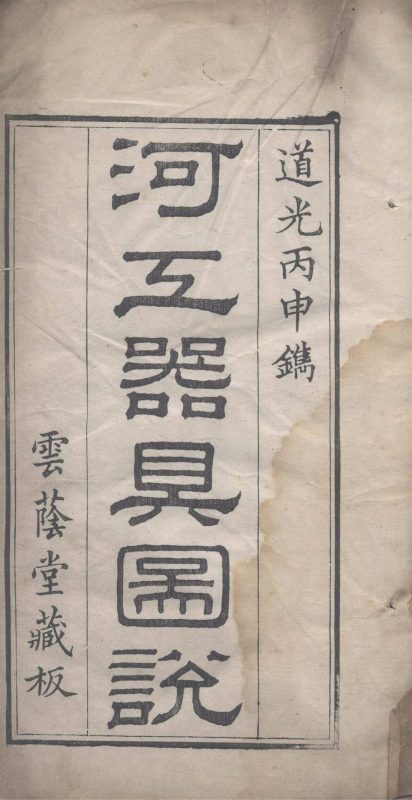 道光丙申鐫
河工器具圖說
雲蔭堂藏板